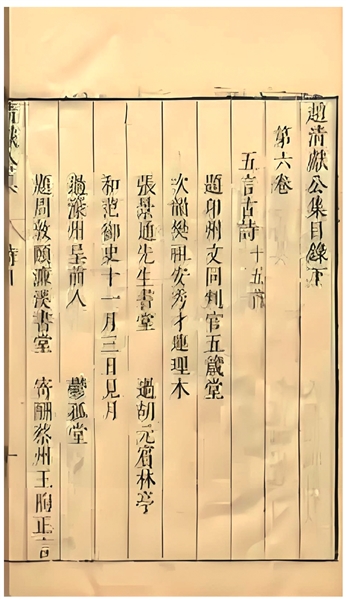 趙清獻公集目錄下
第六卷
五言古詩 十五首
題卭州文同判官五箴堂
次韻樊祖安秀才連理木
張景通先生書堂 過胡元賓林亭
和范御史十一月三日見月
過濠州呈前人 鬱孤堂
題周敦頤濂溪書堂 寄酬蔡州王陶正言